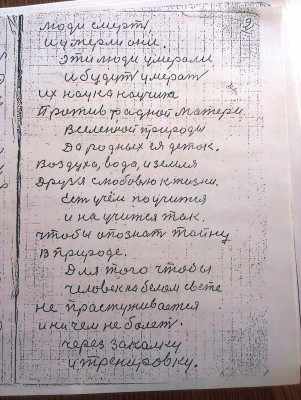 2
люди смерт
и умерли они.
Эти люди умерали
и будут умерат
их наука научила
Против родной матери.
Вселенной природы
Да родных ея деток.
Воздуха, вода, и земля
Друзя с любовью к жизни.
учём поучится
и научится так.
чтобы опознат тайну
в природе.
Для того чтобы
человек на белом свете
не прастуживается
и ничем не болет.
через закалку
и тренировку.